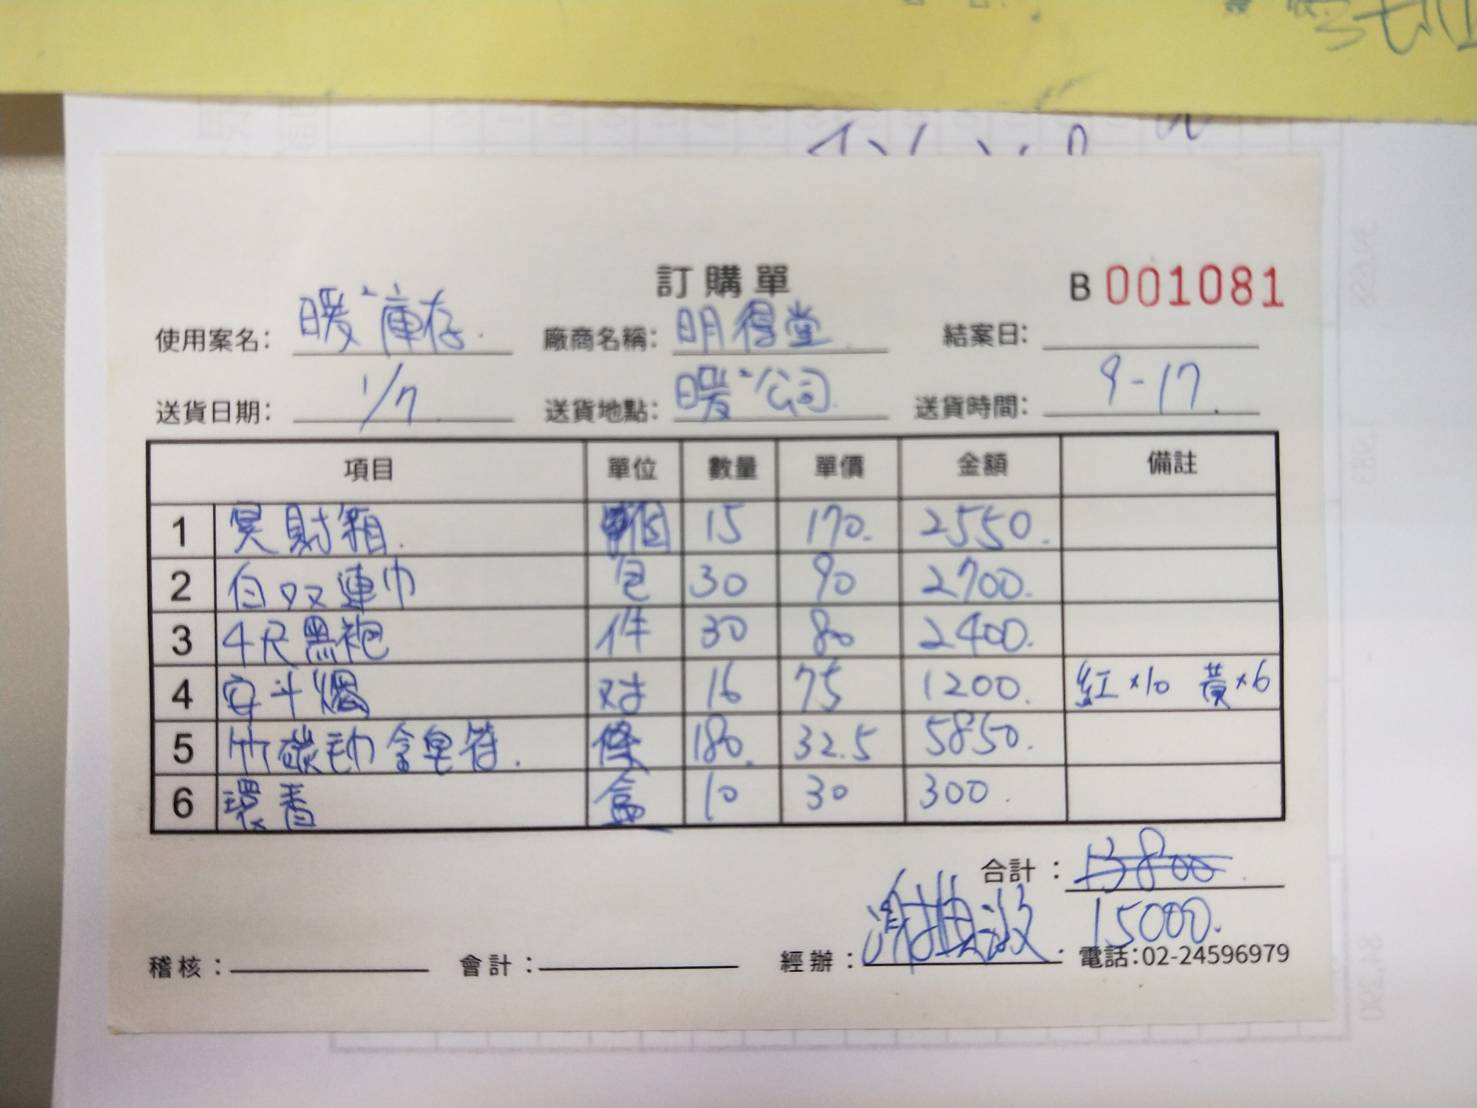 訂購單
B 001081
使用案名: 暖暖庫存 廠商名稱: 明得堂 結案日:
送貨日期: 1/7 送貨地點: 暖暖公司 送貨時間: 9-17
項目 單位 數量 單價 金額 備註
1 冥財箱. 個 15 170. 2550.
2 白 連巾 包 30 90 2700.
3 4尺黑袍 件 30 80 2400.
4 安斗燭 对 16 75 1200. 紅×10 黃×6
5 竹碳毛巾含皂 . 條 180. 32.5 5850.
6 環香 盒 10 30 300.
合計: 13800
15000.
稽核: 會計: 經辦: 電話:02-24596979